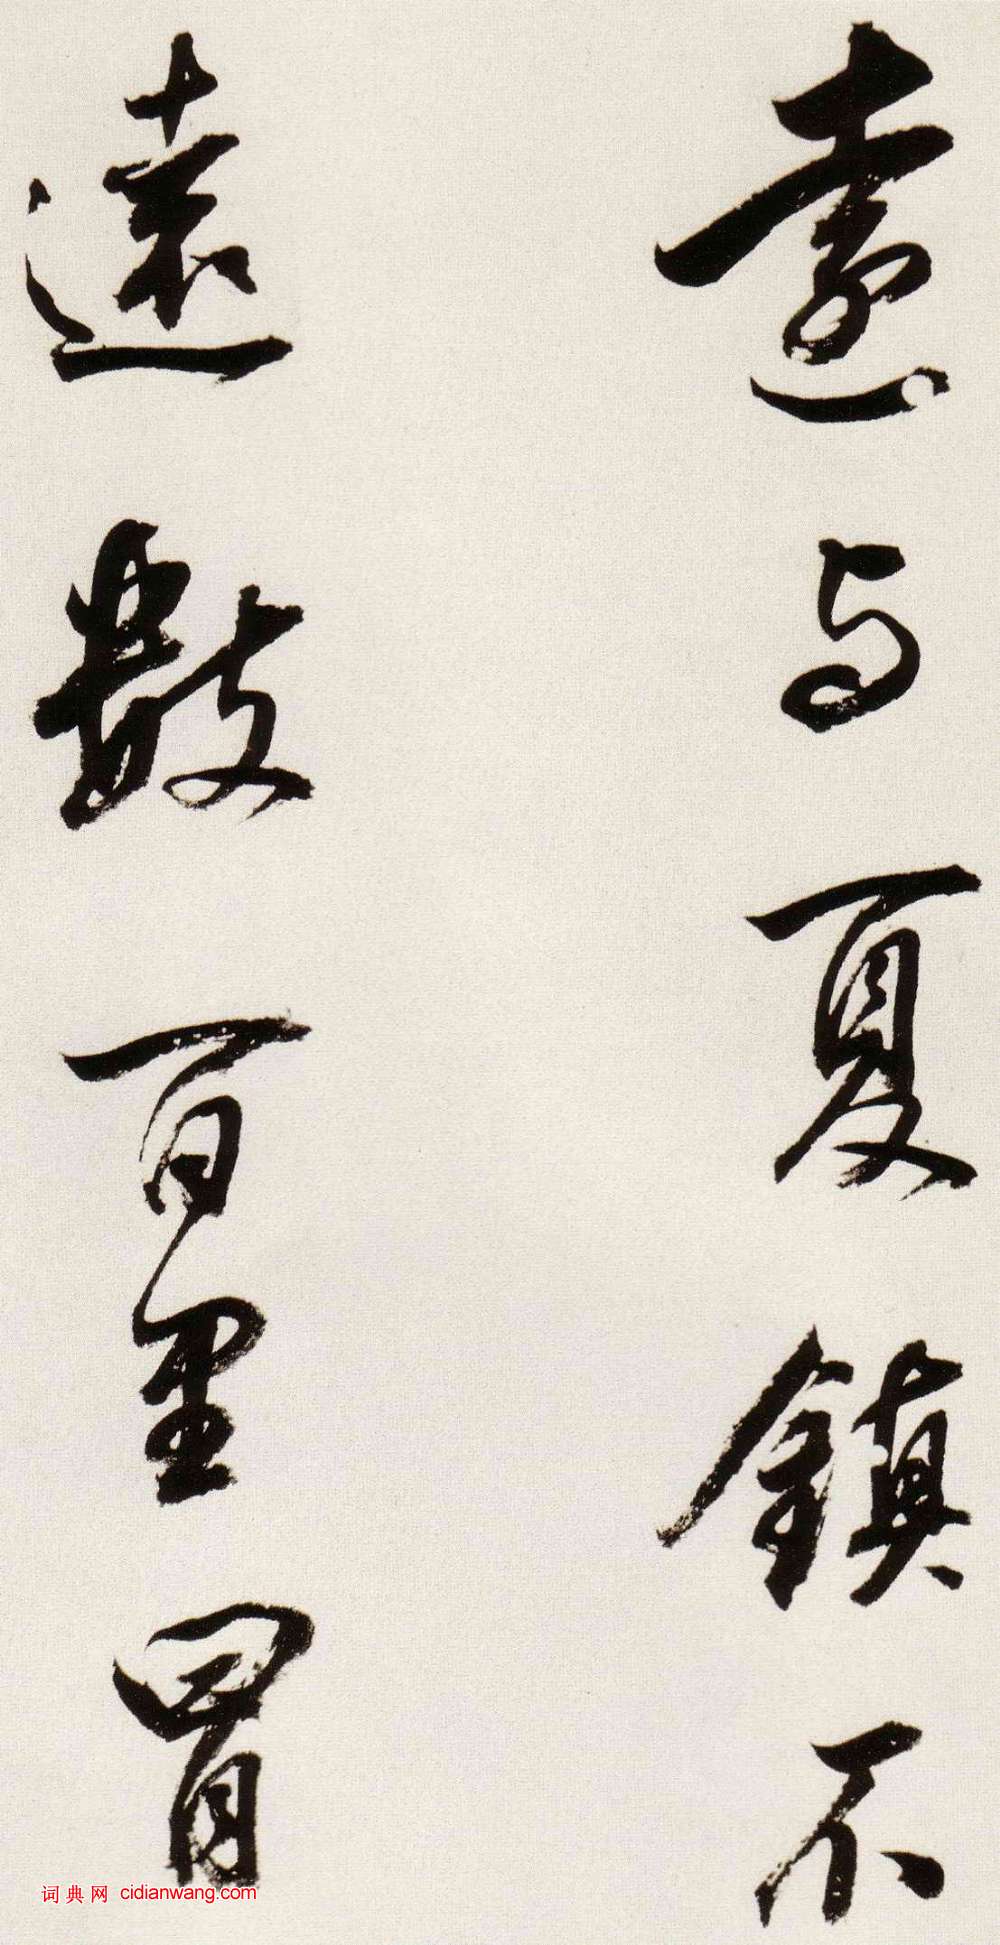 与夏鎮不
遠數百里冒
词典网 cidianwang.com